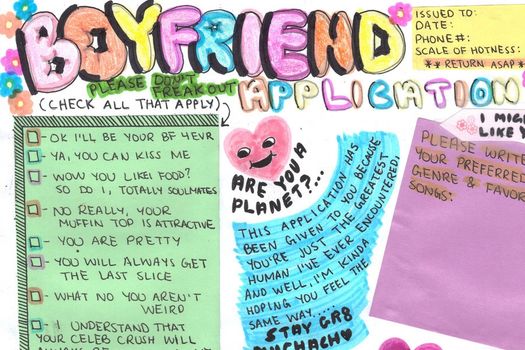 BOYFRIEND
APPLICATION
PLEASE DON'T
FREAK OUT
(CHECK ALL THAT APPLY)
ISSUED TO:
DATE:
PHONE #:
SCALE OF HOTNESS:
** RETURN ASAP **
- OK I'LL BE YOUR BF 4EVR
- YA, YOU CAN KISS ME
- WOW YOU LIKE FOOD?
SO DO I, TOTALLY SOULMATES
- NO REALLY, YOUR
MUFFIN TOP IS ATTRACTIVE
- YOU ARE PRETTY
- YOU WILL ALWAYS GET
THE LAST SLICE
- WHAT NO YOU AREN'T
WEIRD
- I UNDERSTAND THAT
YOUR CELEB CRUSH WILL
ARE YOU A
PLANET?...
THIS APPLICATION HAS
BEEN GIVEN TO YOU BECAUSE
YOU'RE JUST THE GREATEST
HUMAN I'VE EVER ENCOUNTERED,
AND WELL, I'M KINDA
HOPING YOU FEEL THE
SAME WAY....
STAY GR8
I MIGH
LIKE Y
PLEASE WRITE
YOUR PREFERED
GENRE & FAVOR
SONGS: